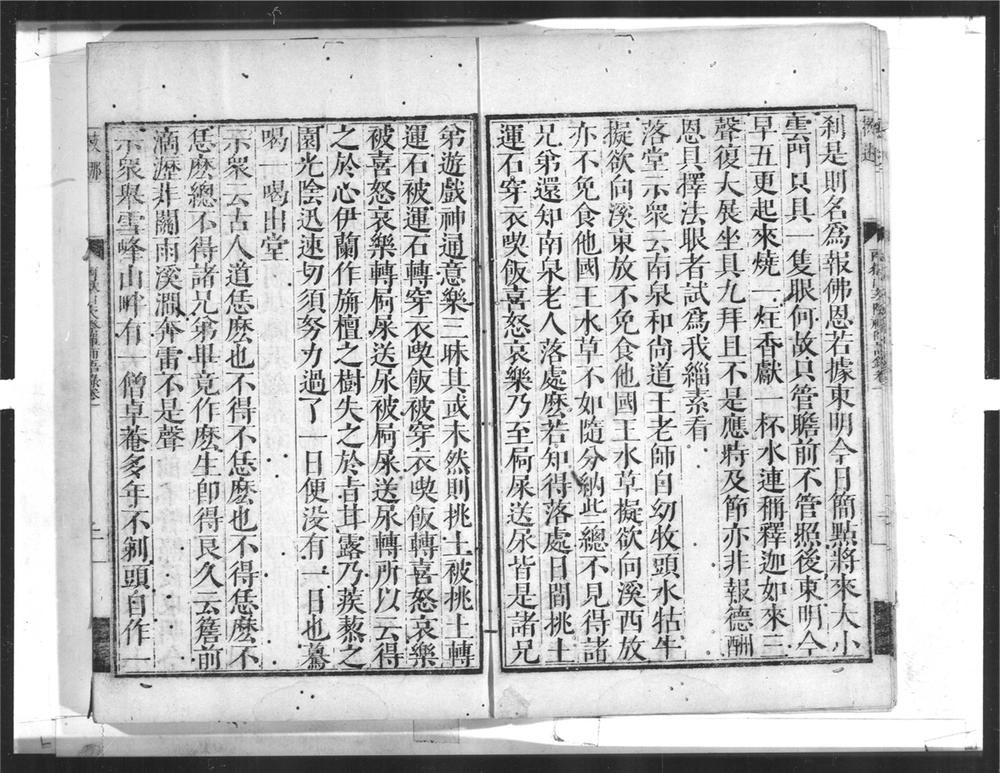 剎是則名為報佛恩若據東明今日簡點將來大小
雲門只具一隻眼何故只管瞻前不管照後東明今
早五更起來燒一炷香獻一杯水連稱釋迦如來三
聲復大展坐具九拜且不是應時及節亦非報德酬
恩具擇法眼者試為我緇素看
落堂示眾云南泉和尚道王老師自幼牧頭水牯牛
擬欲向溪東放不免食他國王水草擬欲向溪西放
亦不免食他國王水草不如隨分納此總不見得諸
兄弟還知南泉老人落處麼若知得落處日間挑土
運石穿衣喫飯喜怒哀樂乃至屙尿送尿皆是諸兄
弟遊戲神通意樂三昧其或未然則挑土被挑土轉
運石被運石轉穿衣喫飯被穿衣喫飯轉喜怒哀樂
被喜怒哀樂轉屙尿送尿被屙尿送尿轉所以云得
之於心伊蘭作旃檀之樹失之於旨甘露乃蒺藜之
園光陰迅速切須努力過了一日便沒有一日也驀
喝一喝出堂
示眾云古人道恁麼也不得不恁麼也不得恁麼不
恁麼總不得諸兄弟畢竟作麼生即得良久云簷前
滴瀝非關雨溪澗奔雷不是聲
示眾舉雪峰山畔有一僧卓菴多年不剃頭自作一